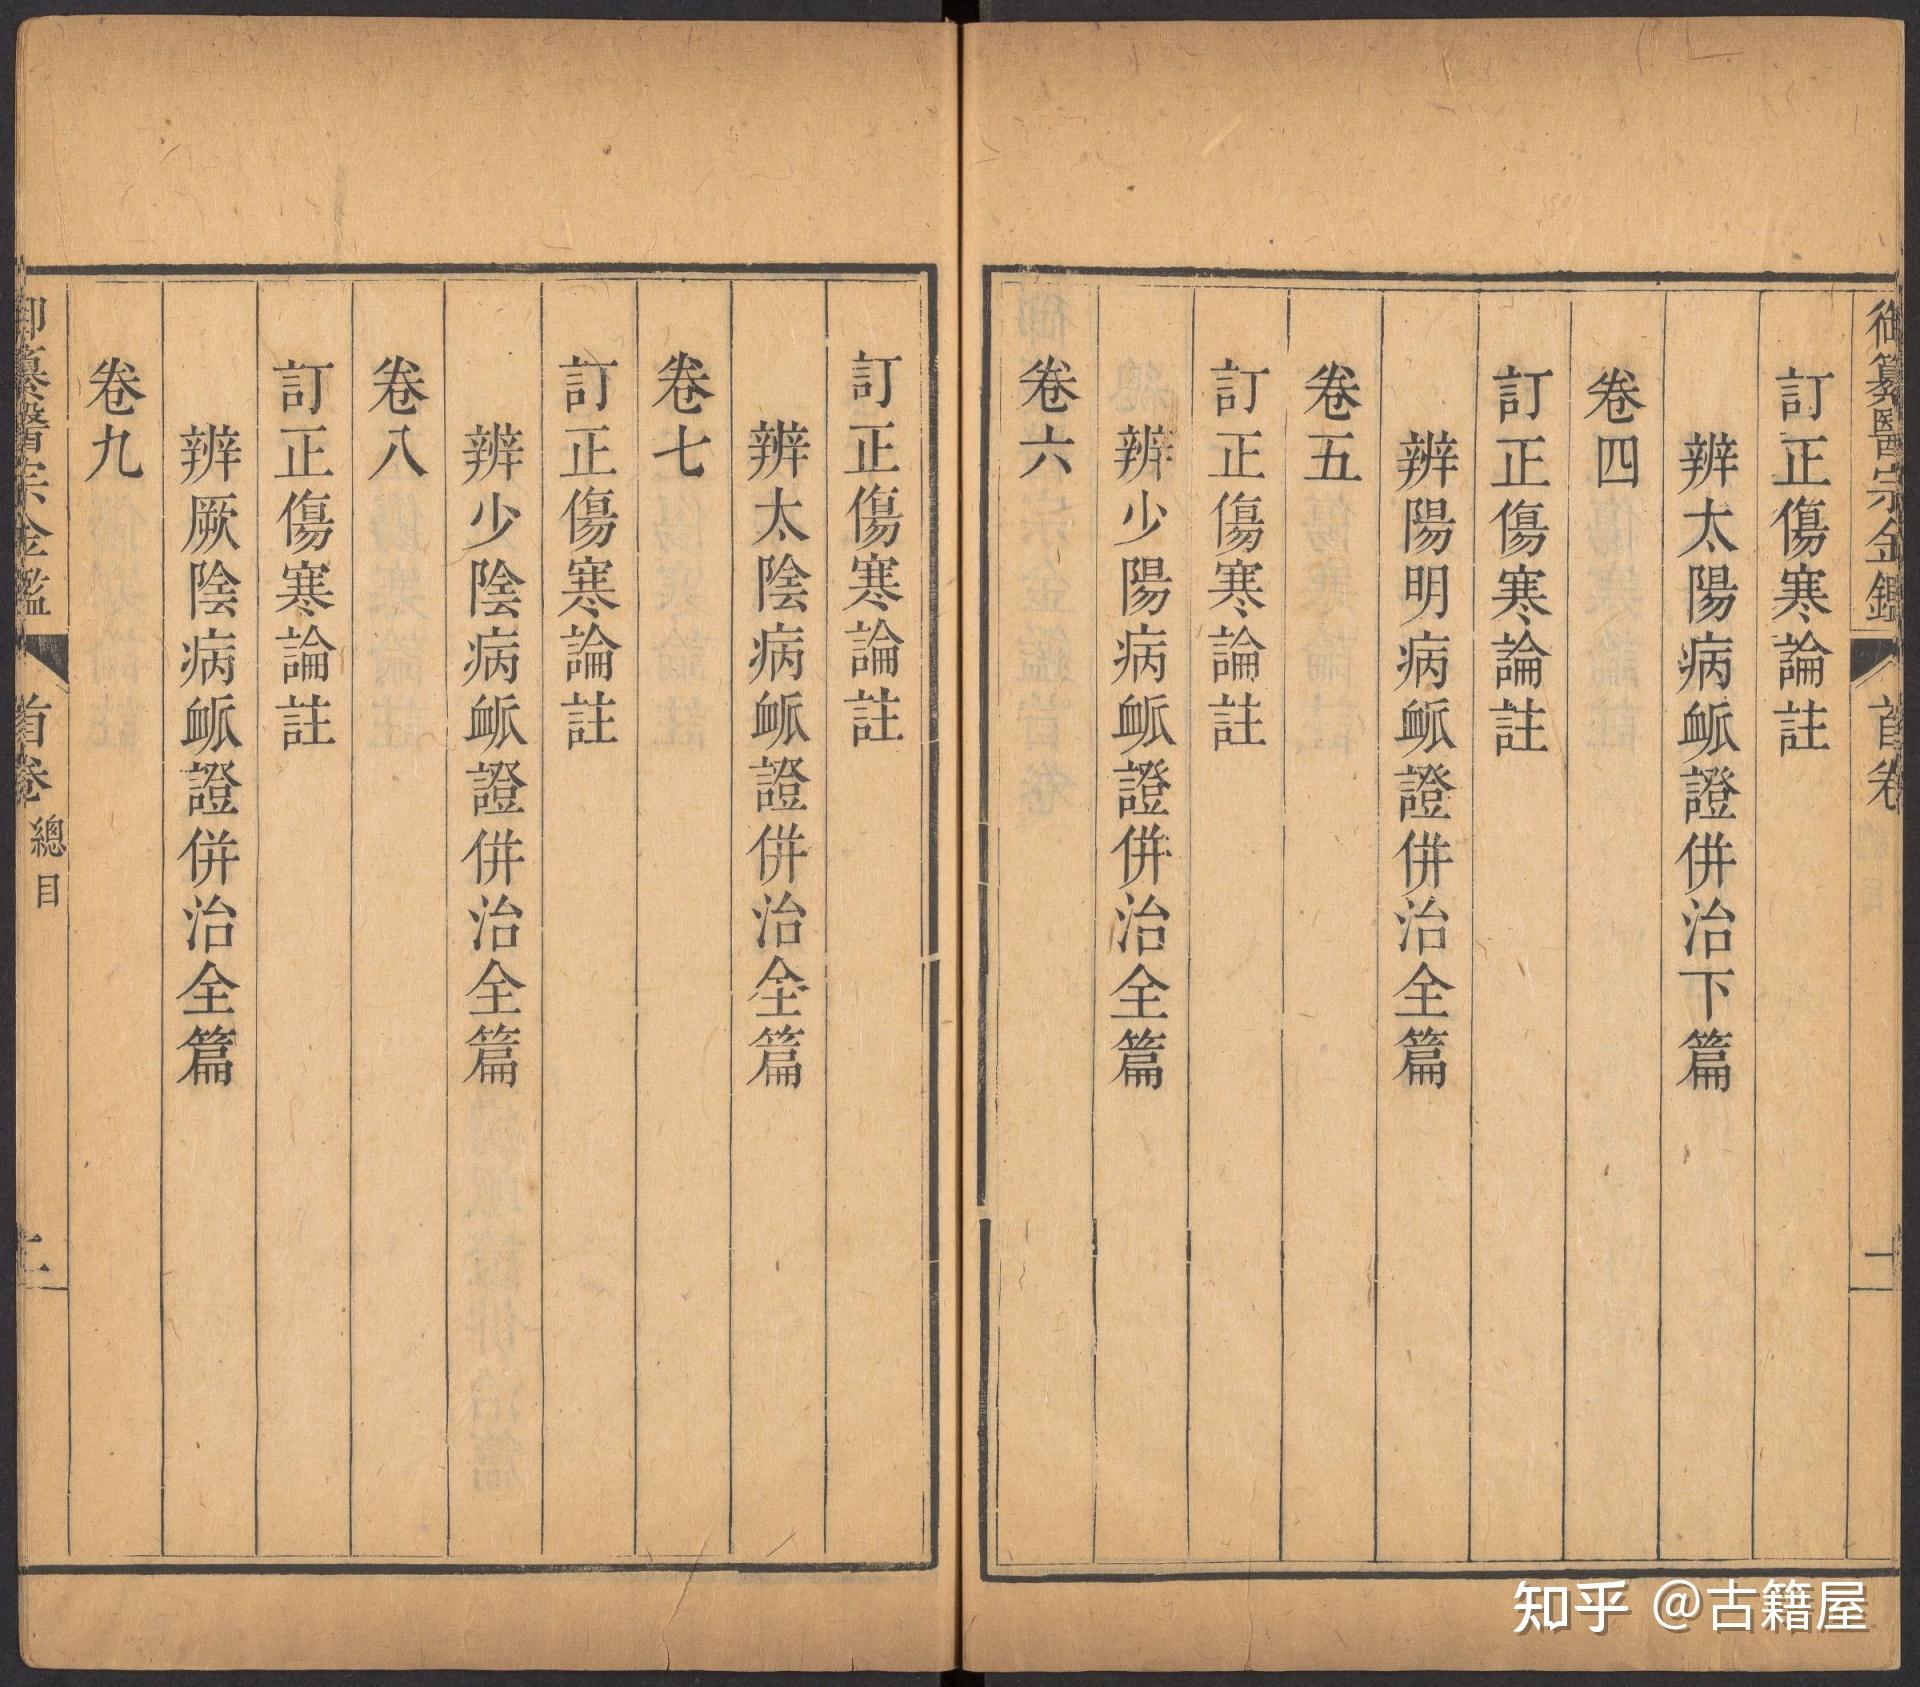 御纂醫宗金鑑 首卷 二
訂正傷寒論註
辨太陽病衇證併治下篇
卷四
訂正傷寒論註
辨陽明病衇證併治全篇
卷五
訂正傷寒論註
辨少陽病衇證併治全篇
卷六
訂正傷寒論註
辨太陰病衇證併治全篇
卷七
訂正傷寒論註
辨少陰病衇證併治全篇
卷八
訂正傷寒論註
辨厥陰病衇證併治全篇
卷九
御纂醫宗金鑑 首卷 總目
知乎 @古籍屋